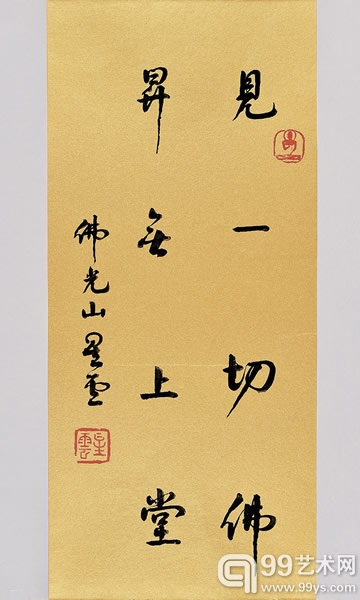 見一切佛
昇无上堂
佛光山星雲
星雲
99艺术网
www.99ys.com